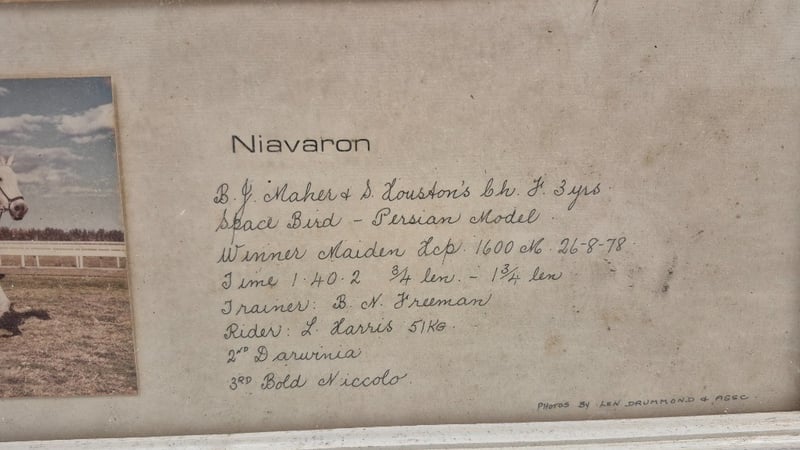 Niavaron
B. J. Maher & S. Houston's Ch. F. 3 yrs.
Space Bird - Persian Model.
Winner Maiden Hcp. 1600 M. 26-8-78.
Time 1·40·2 ¾ len. - 1¾ len
Trainer: B. N. Freeman
Rider: L. Harris 51KG.
2ND Darwinia
3RD Bold Niccolo.
PHOTOS BY LEN DRUMMOND & ASSC.